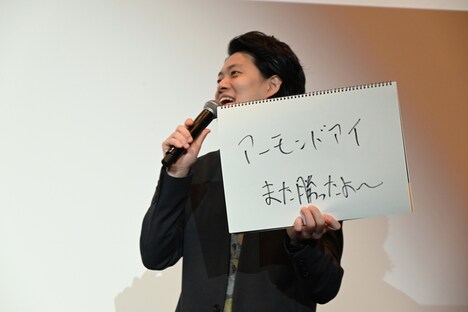 アーモンドアイ
また勝ったよ〜